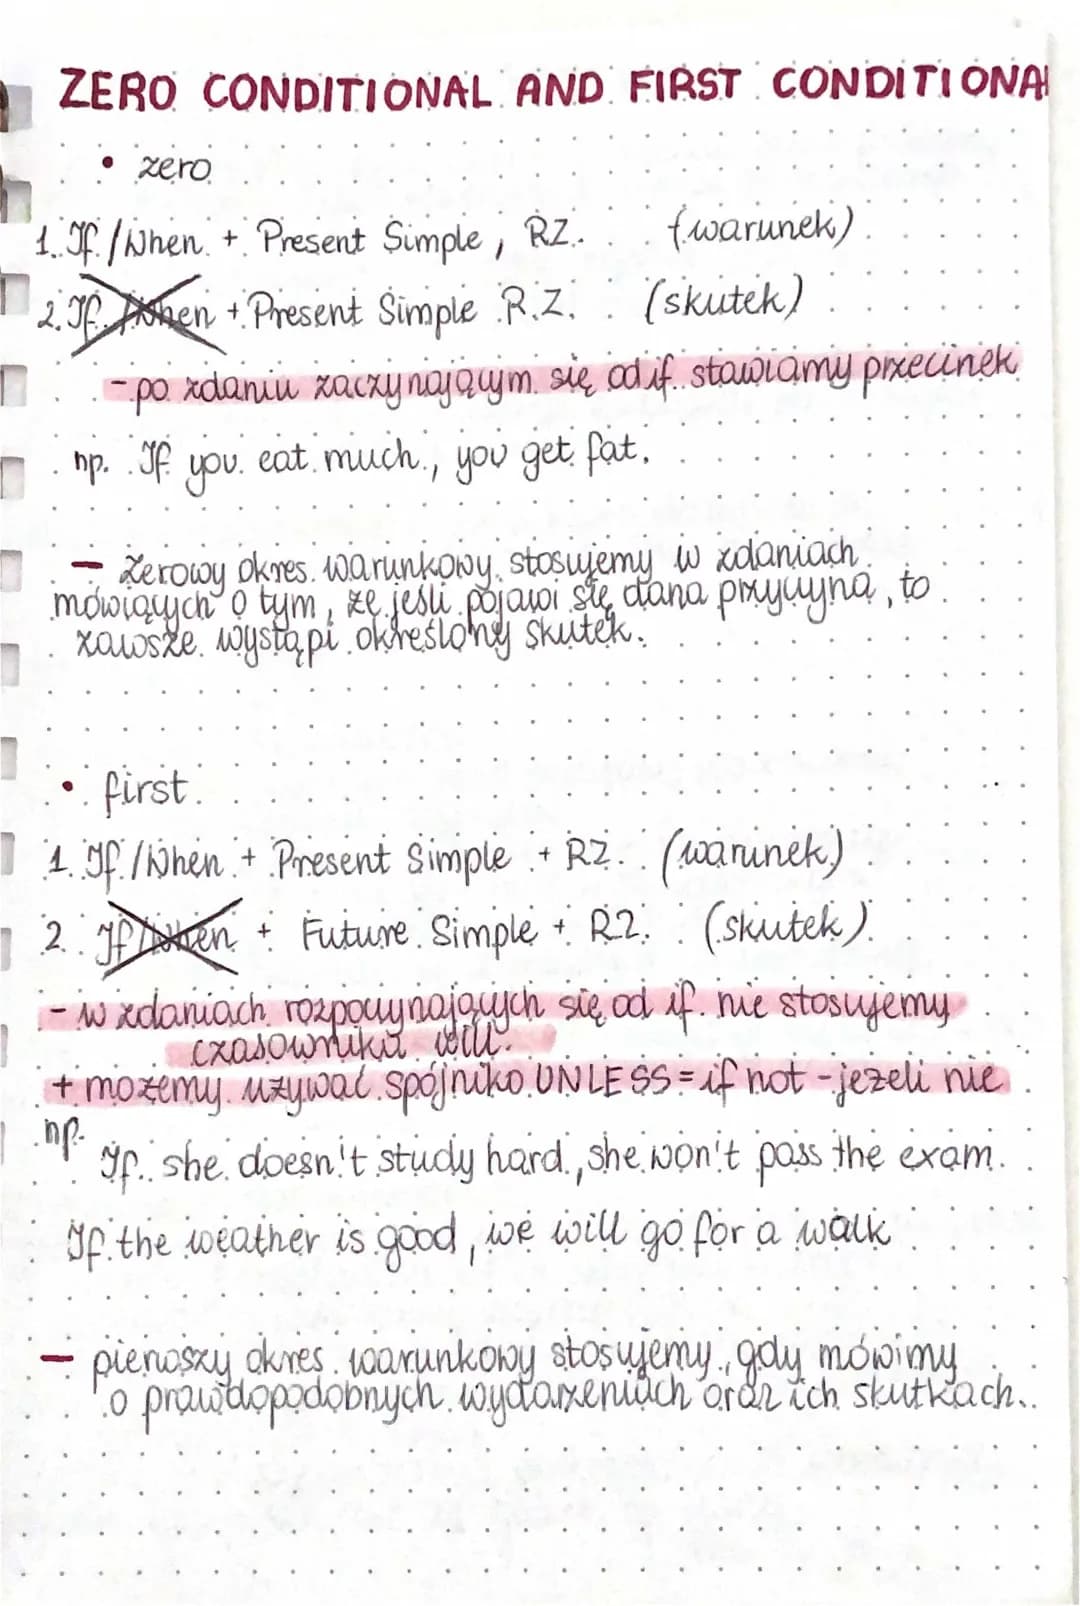 ZERO CONDITIONAL AND FIRST CONDITIONAL
• zero
1. If / When + Present Simple, RZ. (warunek)
2. If / When + Present Simple R.Z. (skutek)
- po zdaniu zaczynającym się od if stawiamy przecinek
np. If you eat much, you get fat.
- Zerowy okres warunkowy stosujemy w zdaniach
mówiących o tym, że jeśli pojawi się dana przyczyna, to
zawsze wystąpi określony skutek.
• first
1. If / When + Present Simple + RZ. (warunek)
2. If / When + Future Simple + RZ. (skutek)
- w zdaniach rozpoczynających się od if nie stosujemy
czasownika will.
+ możemy używać spójniko UNLESS = if not - jeżeli nie
np.
If she doesn't study hard, she won't pass the exam.
If the weather is good, we will go for a walk
- pierwszy okres warunkowy stosujemy, gdy mówimy
o prawdopodobnych wydarzeniach oraz ich skutkach.